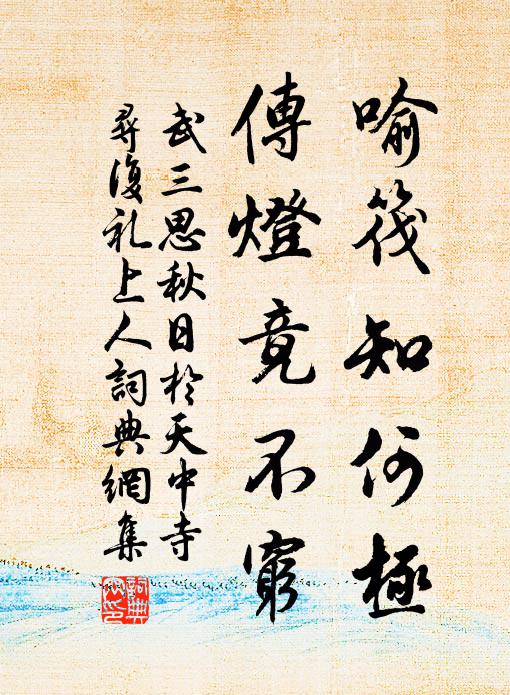 喻筏知何極
傳燈竟不窮
武三思秋日於天中寺
尋復礼上人詞典網集